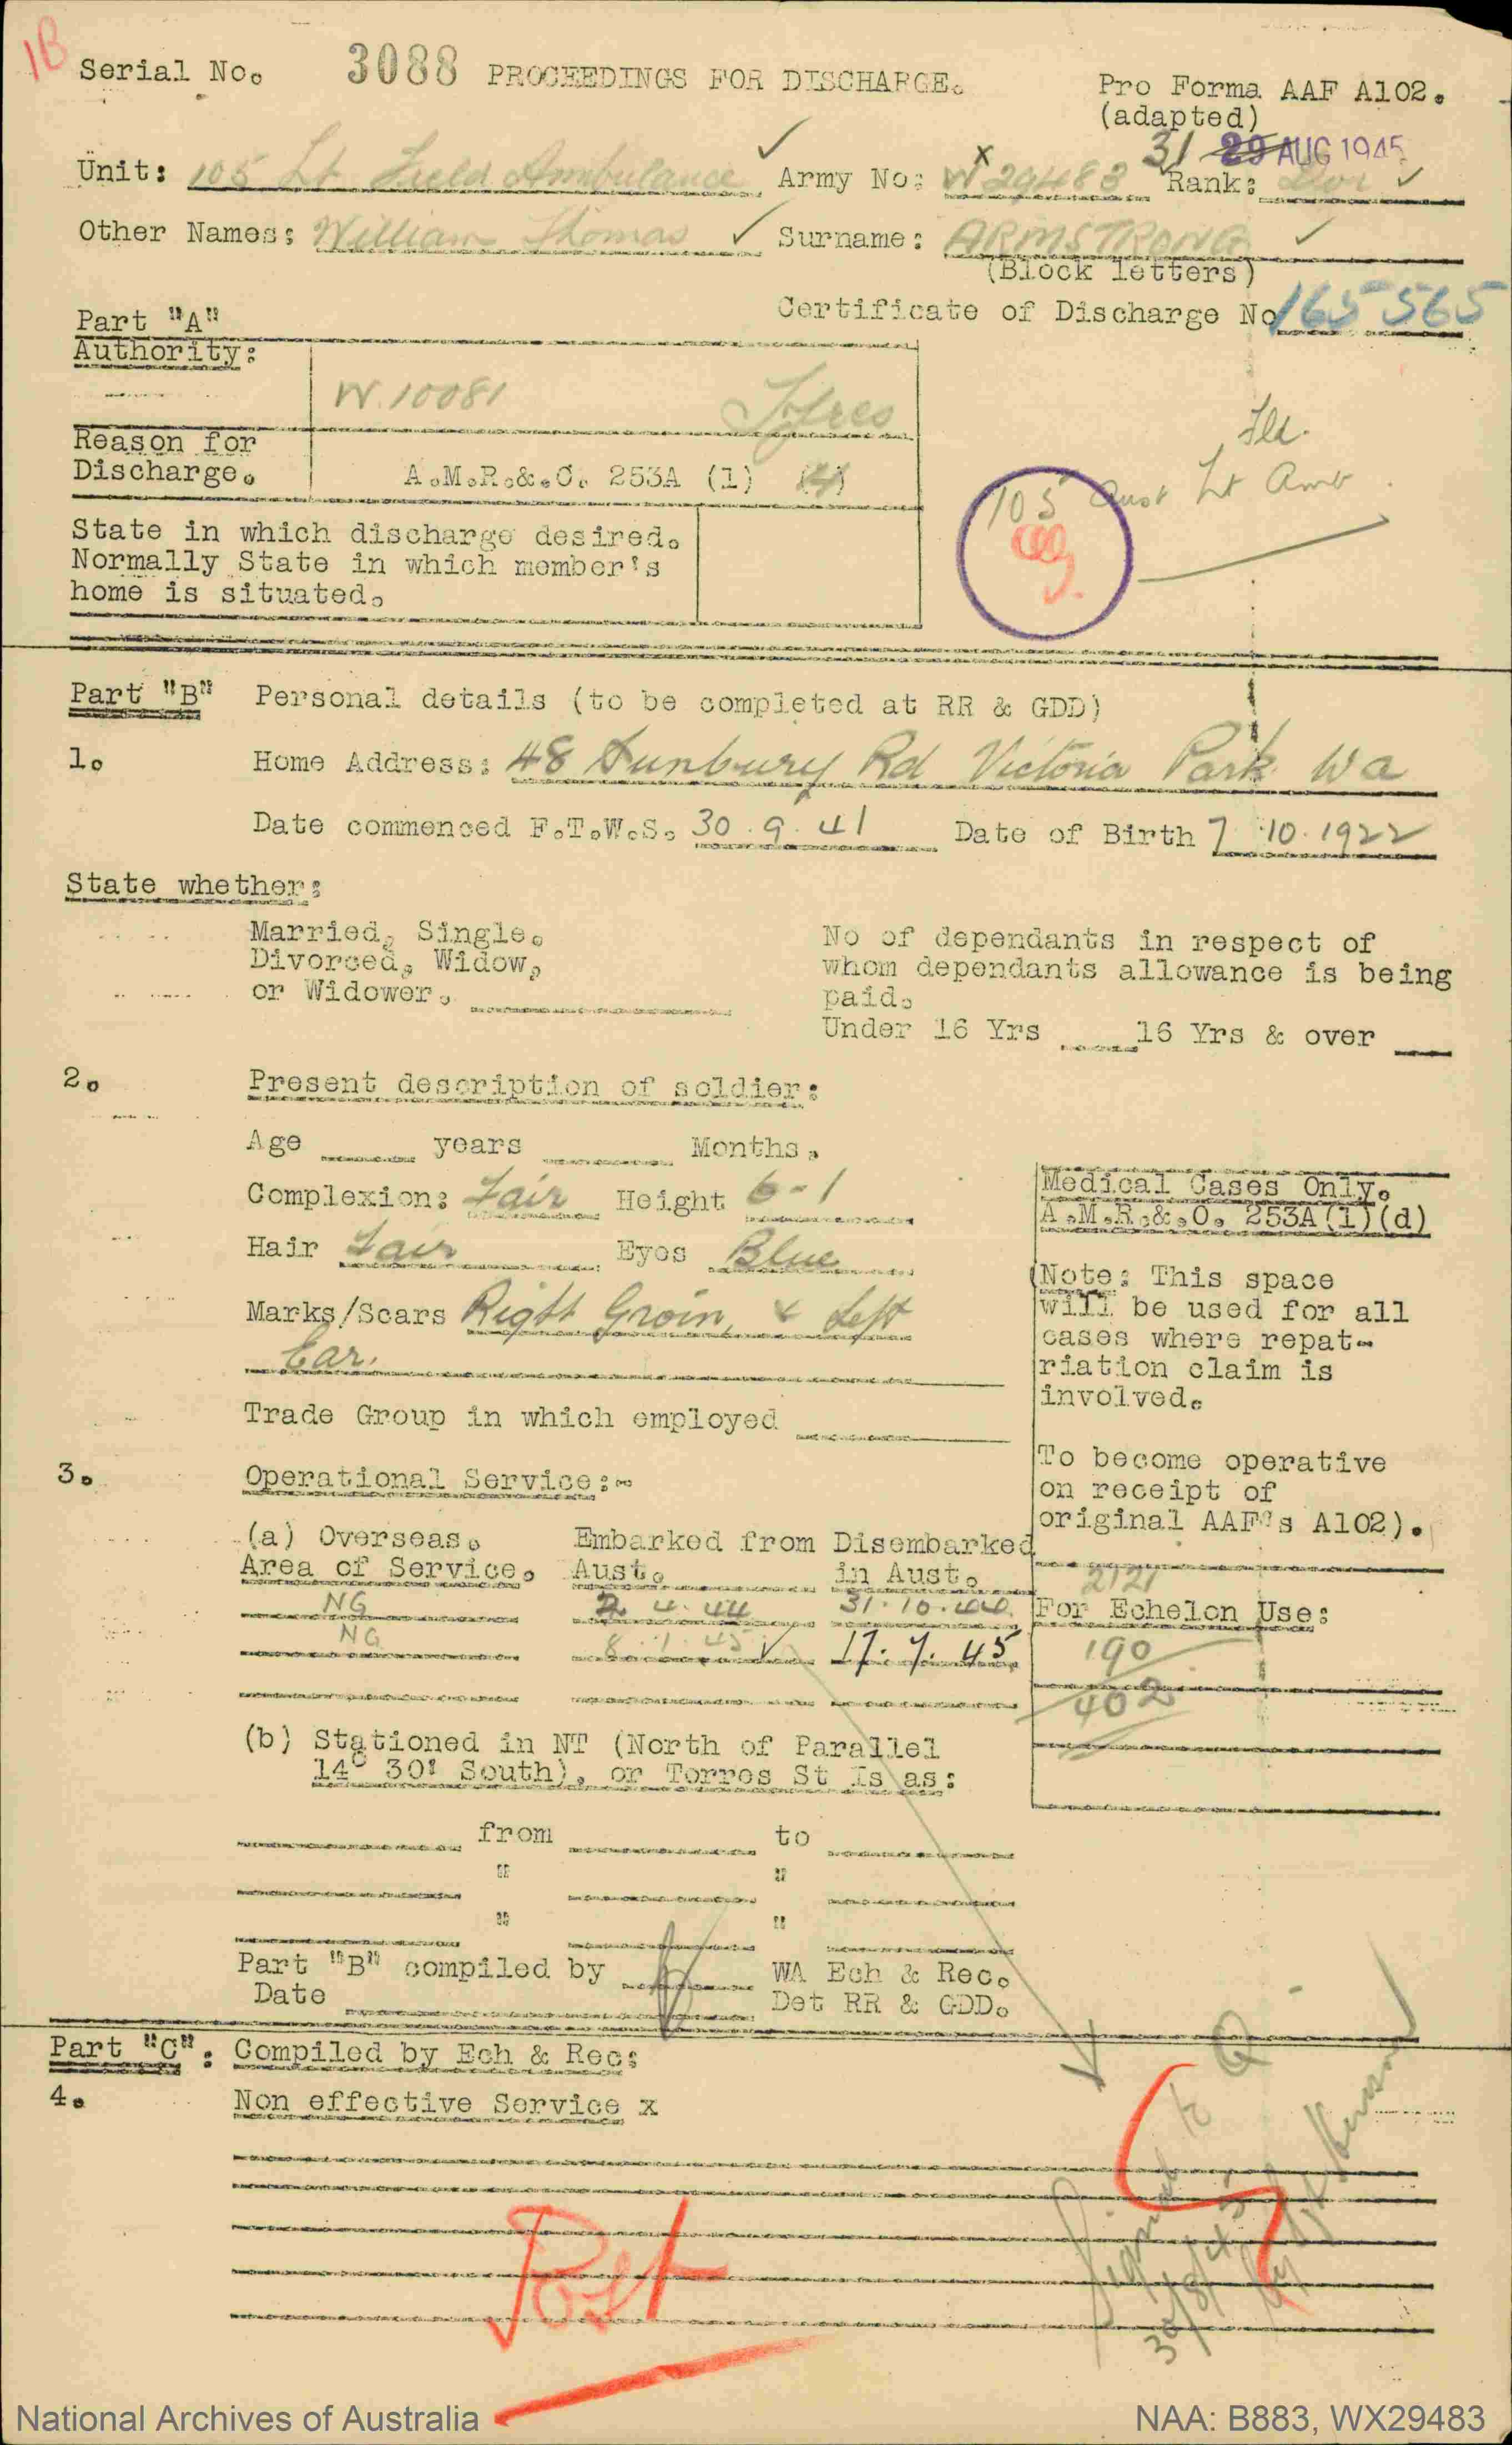 1B
Serial No. 3088 PROCEEDINGS FOR DISCHARGE.
Pro Forma AAF A102.
(adapted)
31 29 AUG 1945
Unit: 105 Lt Field Ambulance Army No: WX29483 Rank:
Other Names: William Thomas Surname: ARMSTRONG
(Block letters)
Certificate of Discharge No 165565
Part "A"
Authority:
W.10081
Reason for
Discharge. A.M.R.&.O. 253A (1)
Fld.
105 Aust Lt Amb
State in which discharge desired.
Normally State in which member's
home is situated.
Part "B" Personal details (to be completed at RR & GDD)
1. Home Address: 48 Sunbury Rd Victoria Park Wa
Date commenced F.T.W.S. 30.9.41 Date of Birth 7.10.1922
State whether:
Married, Single.
Divorced, Widow,
or Widower.
No of dependants in respect of
whom dependants allowance is being
paid.
Under 16 Yrs 16 Yrs & over
2. Present description of soldier:
Age years Months.
Complexion: Fair Height 6-1
Hair Fair Eyes Blue
Marks/Scars Right Groin, & Left
Ear.
Trade Group in which employed
Medical Cases Only.
A.M.R.&.O. 253A(1)(d)
(Note: This space
will be used for all
cases where repat-
riation claim is
involved.
To become operative
on receipt of
original AAF's A102).
3. Operational Service:-
(a) Overseas. Embarked from Disembarked
Area of Service. Aust. in Aust.
NG 4.44 31.10.44
NG 8.1.45 17.7.45
2121
For Echelon Use:
190
402
(b) Stationed in NT (North of Parallel
14° 30' South), or Torres St Is as:
from to
" "
" "
Part "B" compiled by WA Ech & Rec.
Date Det RR & GDD.
Part "C": Compiled by Ech & Rec:
4. Non effective Service x
30/8/45
National Archives of Australia
NAA: B883, WX29483